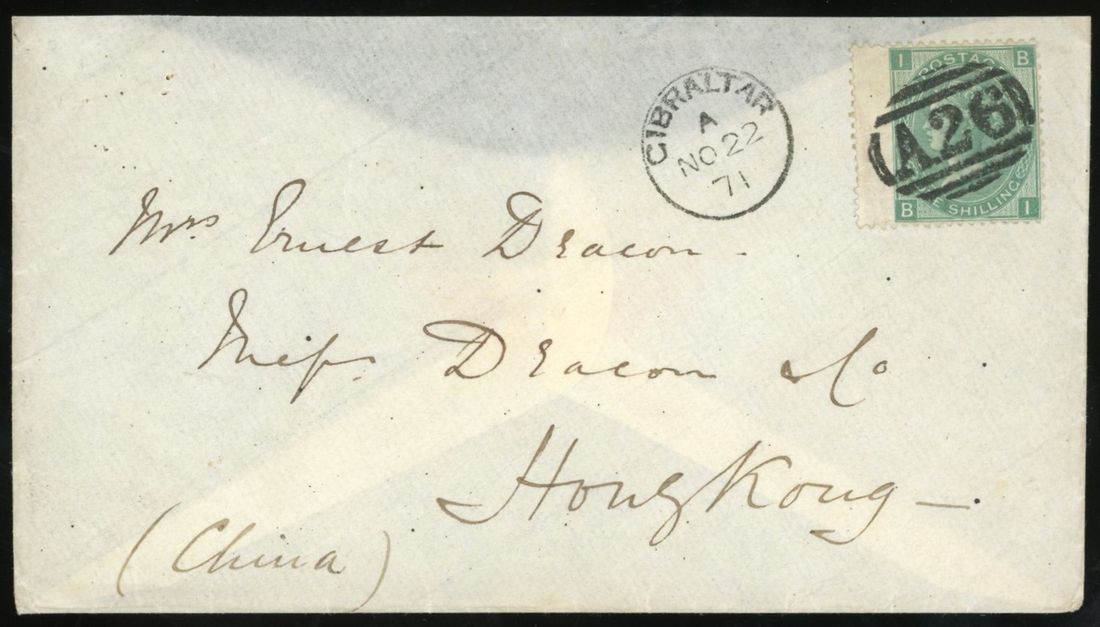 I B
POSTAG
A26
E SHILLING
B I
GIBRALTAR
A
NO 22
71
Mrs Ernest Deacon
Mess Deacon & Co
Hong Kong
(China)